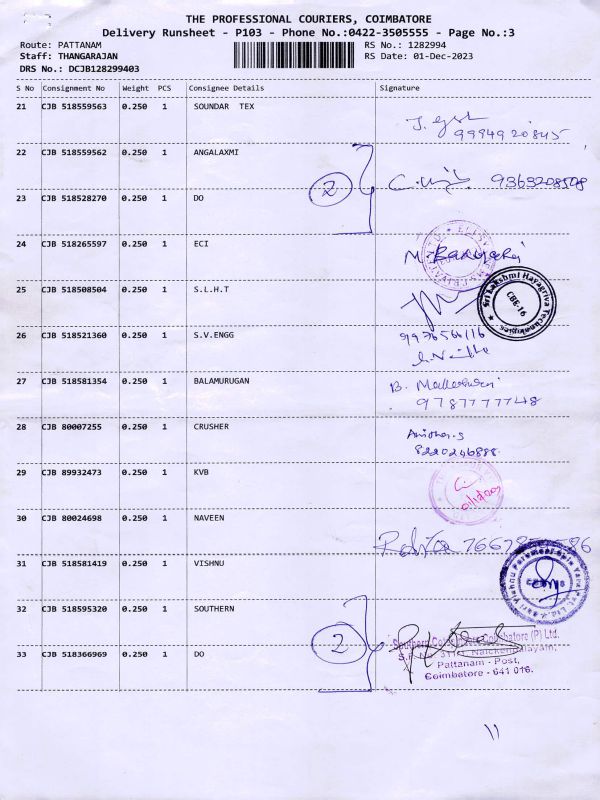 THE PROFESSIONAL COURIERS, COIMBATORE
Delivery Runsheet - P103 - Phone No.:0422-3505555 - Page No.:3
Route: PATTANAM RS No.: 1282994
Staff: THANGARAJAN RS Date: 01-Dec-2023
DRS No.: DCJB128299403
S No Consignment No Weight PCS Consignee Details Signature
21 CJB 518559563 0.250 1 SOUNDAR TEX
9994920845
22 CJB 518559562 0.250 1 ANGALAXMI
2 9363208508
23 CJB 518528270 0.250 1 DO
24 CJB 518265597 0.250 1 ECI
25 CJB 518508504 0.250 1 S.L.H.T
Sri Lakshmi Hayagriva Technologies
CBE-16
26 CJB 518521360 0.250 1 S.V.ENGG
27 CJB 518581354 0.250 1 BALAMURUGAN
B.
9787777748
28 CJB 80007255 0.250 1 CRUSHER
8220246888
29 CJB 89932473 0.250 1 KVB
30 CJB 80024698 0.250 1 NAVEEN
31 CJB 518581419 0.250 1 VISHNU
32 CJB 518595320 0.250 1 SOUTHERN
2
33 CJB 518366969 0.250 1 DO
Pattanam - Post,
Coimbatore - 641 016.
11